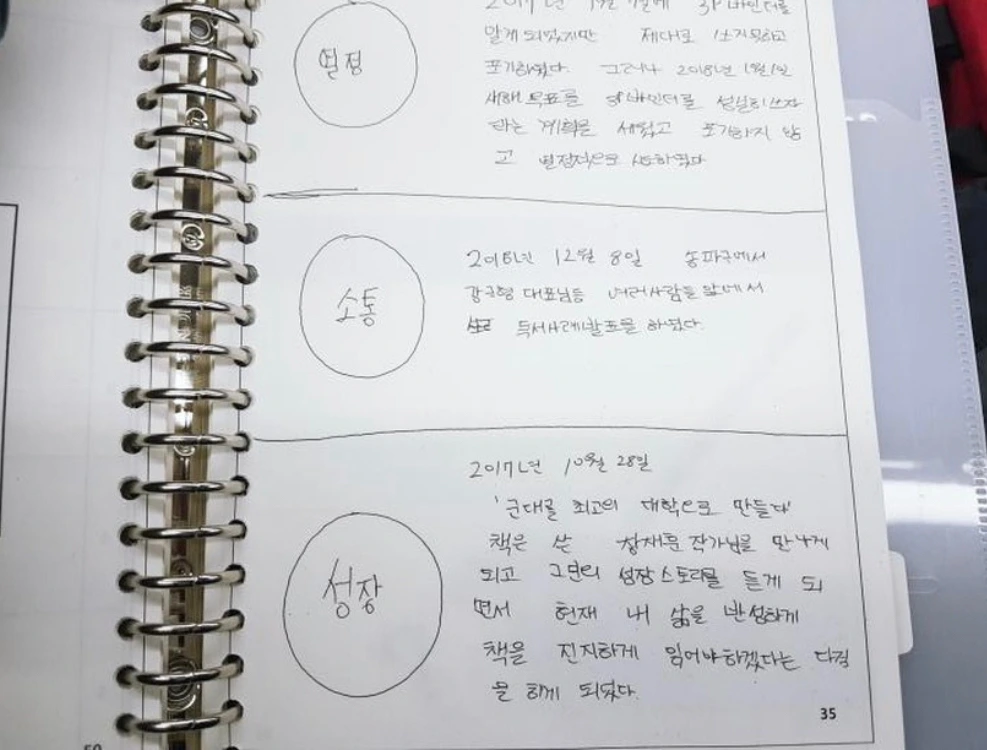 열정
2017년 9월 7일에 3P 바인더를
알게 되었지만 제대로 쓰지못하고
포기하였다. 그러나 2018년 1월 1일
새해 목표를 3P바인더를 성실히쓰자
라는 계획을 세웠고 포기하지 않
고 열정적으로 사용하였다
소통
2018년 12월 8일 송파구에서
강규형 대표님등 여러사람들앞에서
독서사례발표를 하였다.
성장
2017년 10월 28일
'군대를 최고의 대학으로 만들다'
책은 쓴 장재훈 작가님을 만나게
되고 그분의 성장스토리를 듣게 되
면서 현재 내 삶을 반성하게
책을 진지하게 읽어야하겠다는 다짐
을 하게 되었다.
35